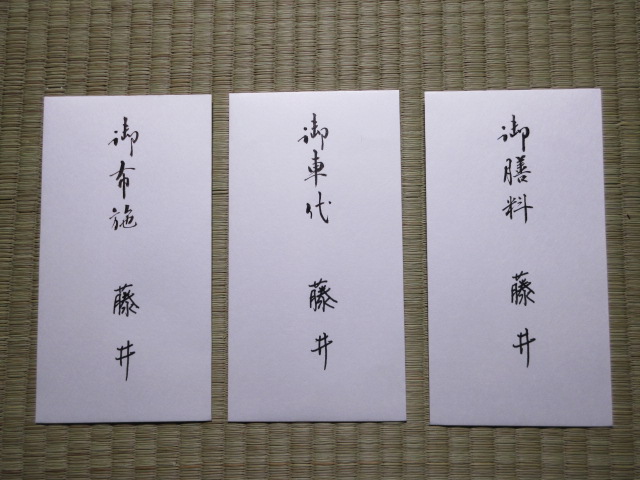 御布施 藤井
御車代 藤井
御膳料 藤井